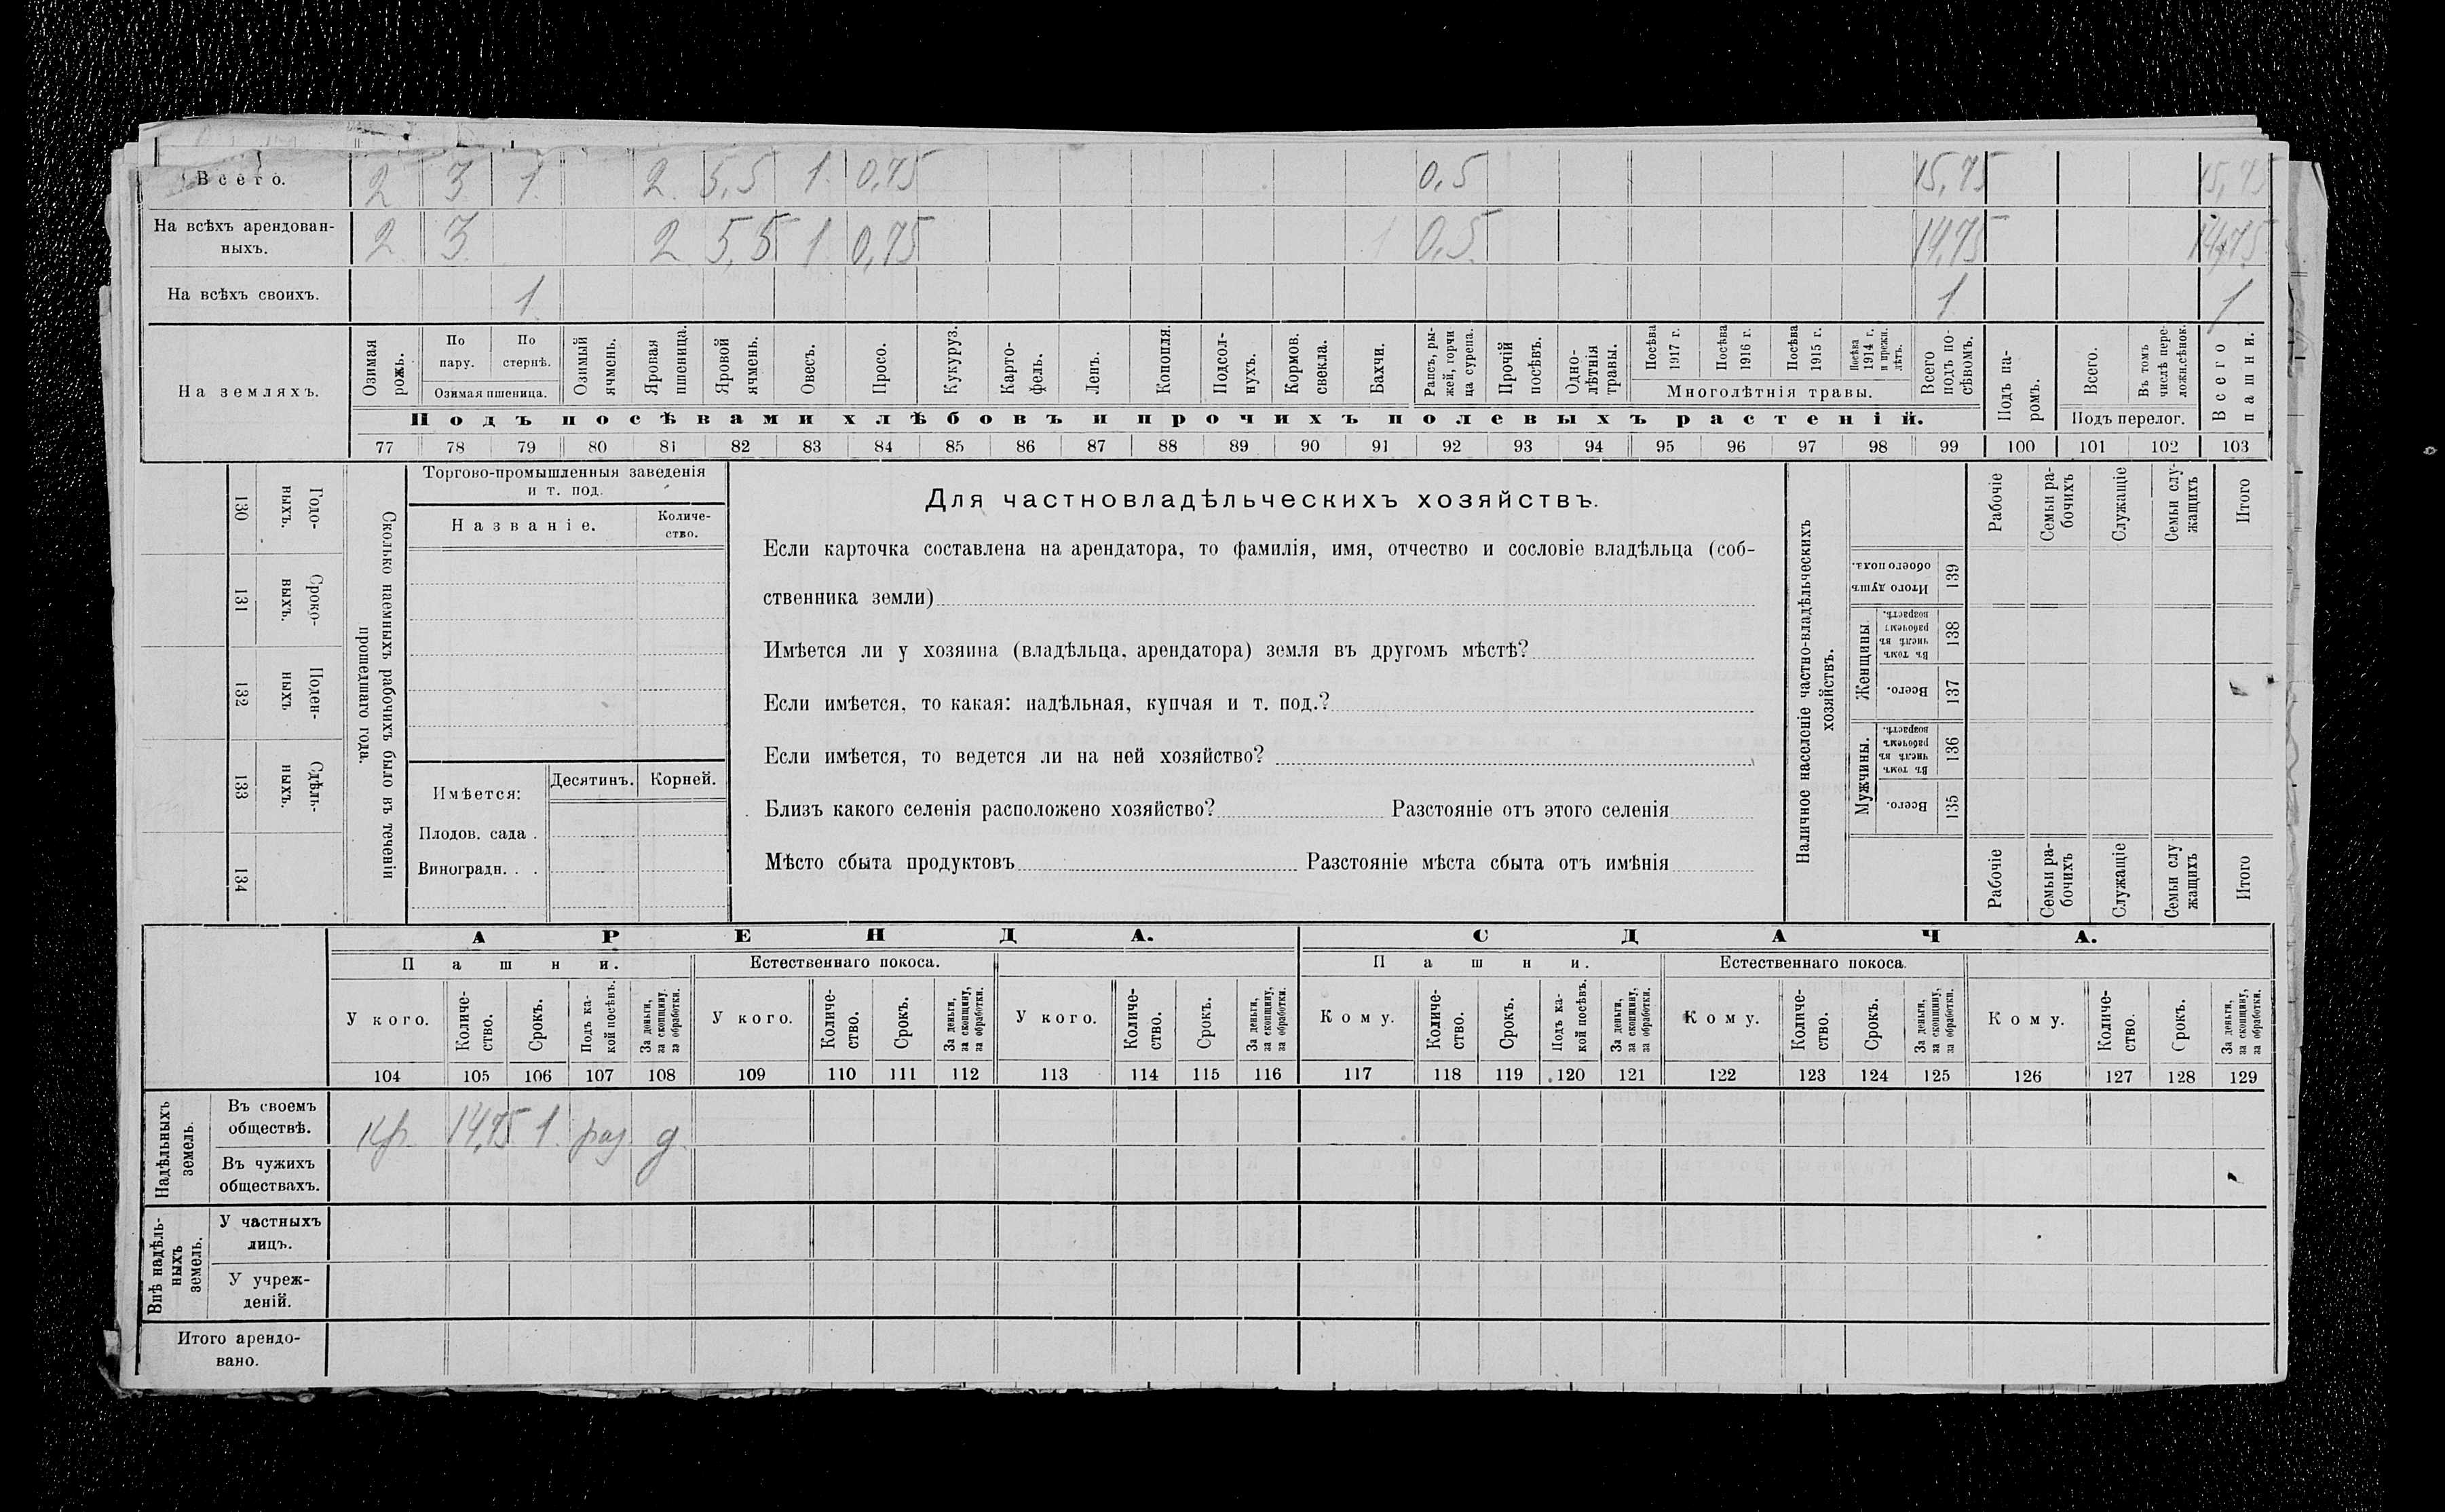 Всего. 2 3 1 2 5,5 1 0,75 0,5 15,75 15,75
На всѣхъ арендован-
ныхъ. 2 3 2 5,5 1 0,75 0,5 14,75 14,75
На всѣхъ своихъ. 1 1 1
На земляхъ.
Озимая рожь.
По пару.
По стернѣ.
Озимая пшеница.
Озимый ячмень.
Яровая пшеница.
Яровой ячмень.
Овесъ.
Просо.
Кукуруз.
Карто-
фель.
Ленъ.
Конопля.
Подсол-
нухъ.
Кормов. свекла.
Бахчи.
Рапсъ, ры-
жей, горчи
ца сурепа.
Прочій посѣвъ.
Одно-
лѣтнія
травы.
Посѣва 1917 г.
Посѣва 1916 г.
Посѣва 1915 г.
Посѣва 1914 г. и прежн. лѣтъ.
Многолѣтнія травы.
Всего подъ по-
сѣвомъ.
Подъ посѣвами хлѣбовъ и прочихъ полевыхъ растеній.
Подъ па-
ромъ.
Всего.
Въ томъ числѣ пере-
ложн.сѣнок.
Подъ перелог.
Всего пашни.
77 78 79 80 81 82 83 84 85 86 87 88 89 90 91 92 93 94 95 96 97 98 99 100 101 102 103
130 Годо-
ныхъ.
131 Сроко-
выхъ.
132 Поден-
ныхъ
133 Сдѣль-
ныхъ.
134
Сколько наемныхъ рабочихъ было въ теченіи
прошедшаго года.
Торгово-промышленныя заведенія
и т. под.
Названіе.
Количе-
ство.
Имѣется:
Десятинъ. Корней.
Плодов. сада .
Виноградн. . .
Для частновладѣльческихъ хозяйствъ.
Если карточка составлена на арендатора, то фамилія, имя, отчество и сословіе владѣльца (соб-
ственника земли)
Имѣется ли у хозяина (владѣльца, арендатора) земля въ другомъ мѣстѣ?
Если имѣется, то какая: надѣльная, купчая и т. под.?
Если имѣется, то ведется ли на ней хозяйство?
Близъ какого селенія расположено хозяйство? Разстояніе отъ этого селенія
Мѣсто сбыта продуктовъ Разстояніе мѣста сбыта отъ имѣнія
Наличное населеніе частно-владѣльческихъ
хозяйствъ.
Рабочіе
Семьи ра-
бочихъ
Служащіе
Семьи слу-
жащихъ
Итого
Итого душъ обоего пола. 139
Женщины.
Въ томъ числѣ въ рабочемъ возрастѣ. 138
Всего. 137
Мужчины.
Въ томъ числѣ въ рабочемъ возрастѣ. 136
Всего. 135
Рабочіе
Семьи ра-
бочихъ
Служащіе
Семьи слу
жащихъ
Итого
АРЕНДА. СДАЧА.
Пашни. Естественнаго покоса. Пашни. Естественнаго покоса.
У кого.
Количе-
ство.
Срокъ.
Подъ ка-
кой посѣвъ.
За деньги,
за скопщину,
за обработки.
У кого.
Количе-
ство.
Срокъ.
За деньги,
за скопщину,
за обработки.
У кого.
Количе-
ство.
Срокъ.
За деньги,
за скопщину,
за обработки.
Кому.
Количе-
ство.
Срокъ.
Подъ ка-
кой посѣвъ.
За деньги,
за скопщину,
за обработки.
Кому.
Количе-
ство.
Срокъ.
За деньги,
за скопщину,
за обработки.
Кому.
Количе-
ство.
Срокъ.
За деньги,
за скопщину,
за обработки.
104 105 106 107 108 109 110 111 112 113 114 115 116 117 118 119 120 121 122 123 124 125 126 127 128 129
Надѣльныхъ
земель.
Въ своемъ
обществѣ. кр. 14,75 1. раз. д.
Въ чужихъ
обществахъ.
Внѣ надѣль-
ныхъ
земель.
У частныхъ
лицъ.
У учреж-
деній.
Итого арендо-
вано.